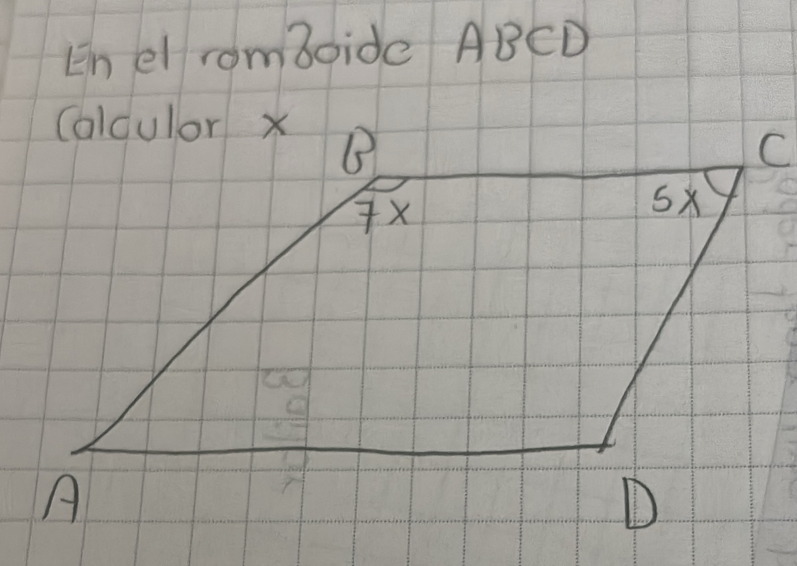 En el romboide ABCD
Calcular x
B
C
7x
5x
A
D